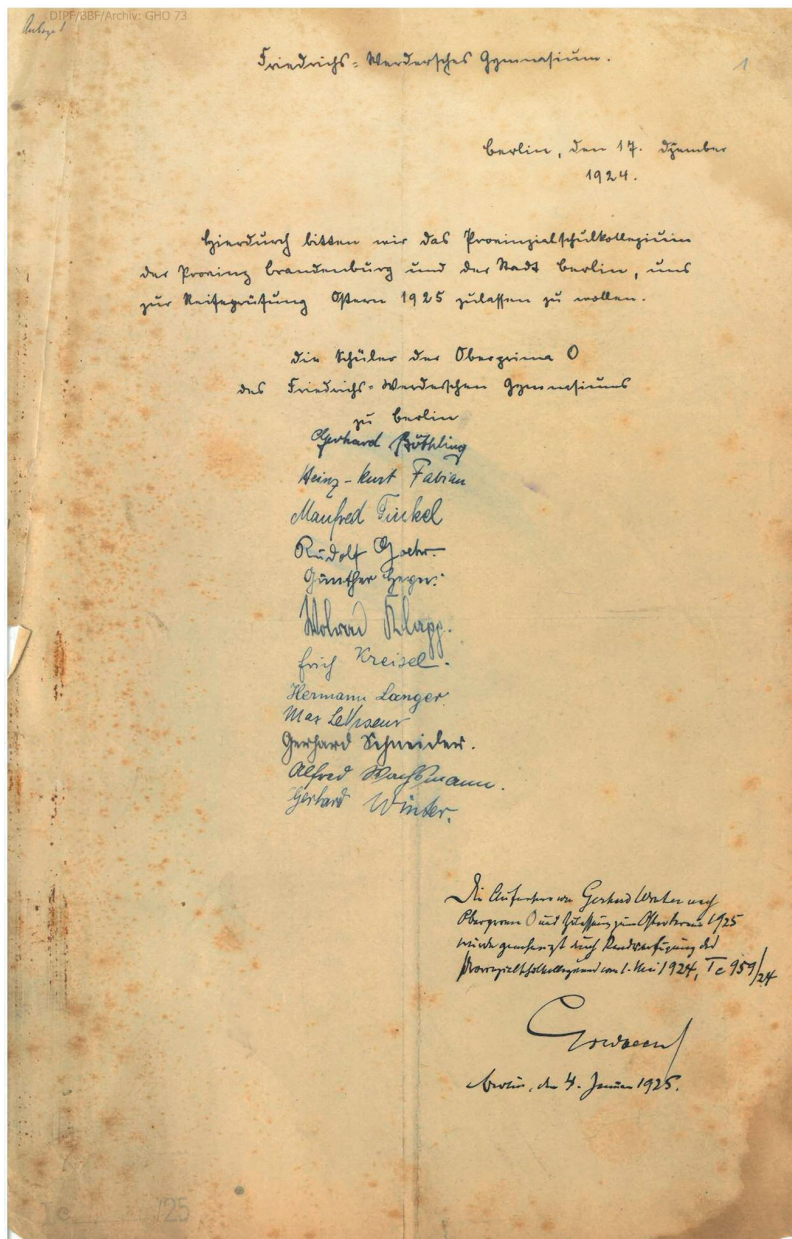 DIPF/BBF/Archiv: GHO 73
Anlage 1
1
Friedrichs-Werdersches Gymnasium.
Berlin, den 17. Dezember
1924.
Hierdurch bitten wir das Provinzialschulkollegium
der Provinz Brandenburg und der Stadt Berlin, uns
zur Reifeprüfung Ostern 1925 zulassen zu wollen.
Die Schüler der Oberprima O
des Friedrichs-Werderschen Gymnasiums
zu Berlin
Gerhard Böthling
Heinz-Kurt Fabian
Manfred Finkel
Rudolf
Günther
Wolrad Klapp.
Erich Kreisel.
Hermann Langer.
Max LeViseur
Gerhard Schneider.
Alfred
Gerhard Winter.
Die Aufnahme von Gerhard Winter nach
Oberprima O und Zulassung zum Ostertermin 1925
wurde genehmigt durch Randverfügung des
Provinzialschulkollegiums vom 1. Mai 1924, Ic 959/24
Berlin, den 4. Januar 1925.
Ic /25